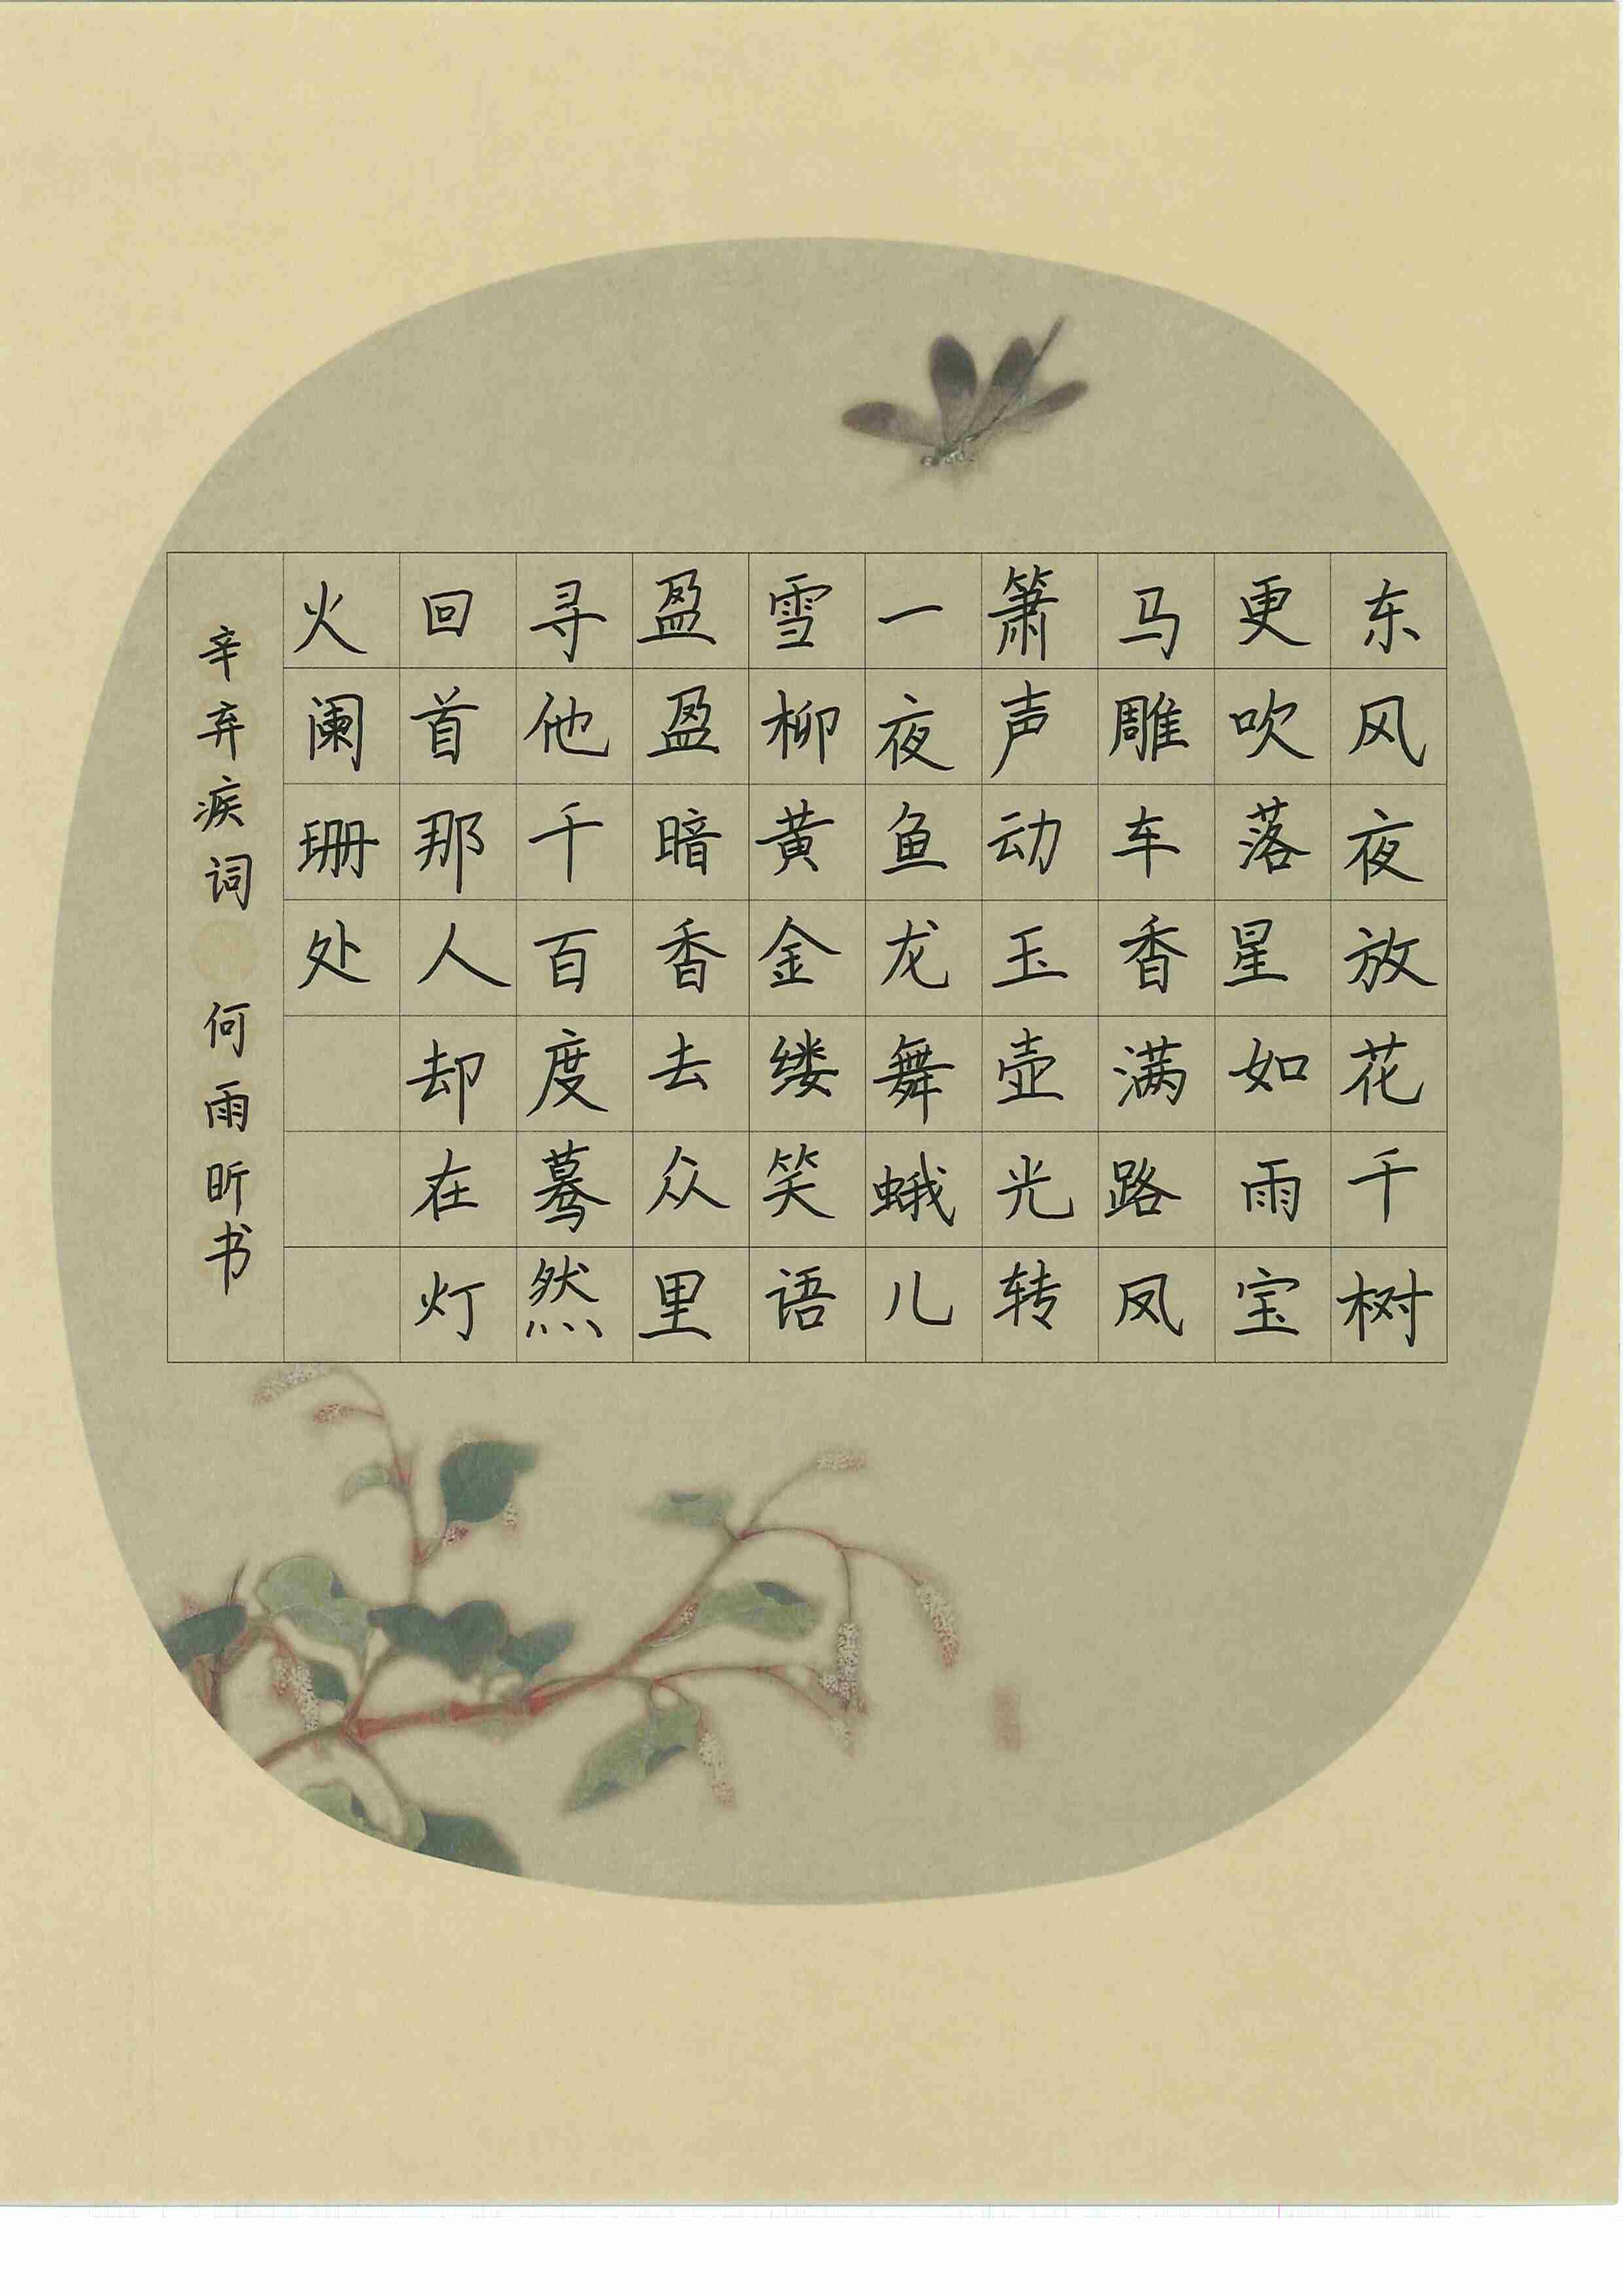 东风夜放花千树
更吹落星如雨宝
马雕车香满路凤
箫声动玉壶光转
一夜鱼龙舞蛾儿
雪柳黄金缕笑语
盈盈暗香去众里
寻他千百度蓦然
回首那人却在灯
火阑珊处
辛弃疾词 何雨昕书